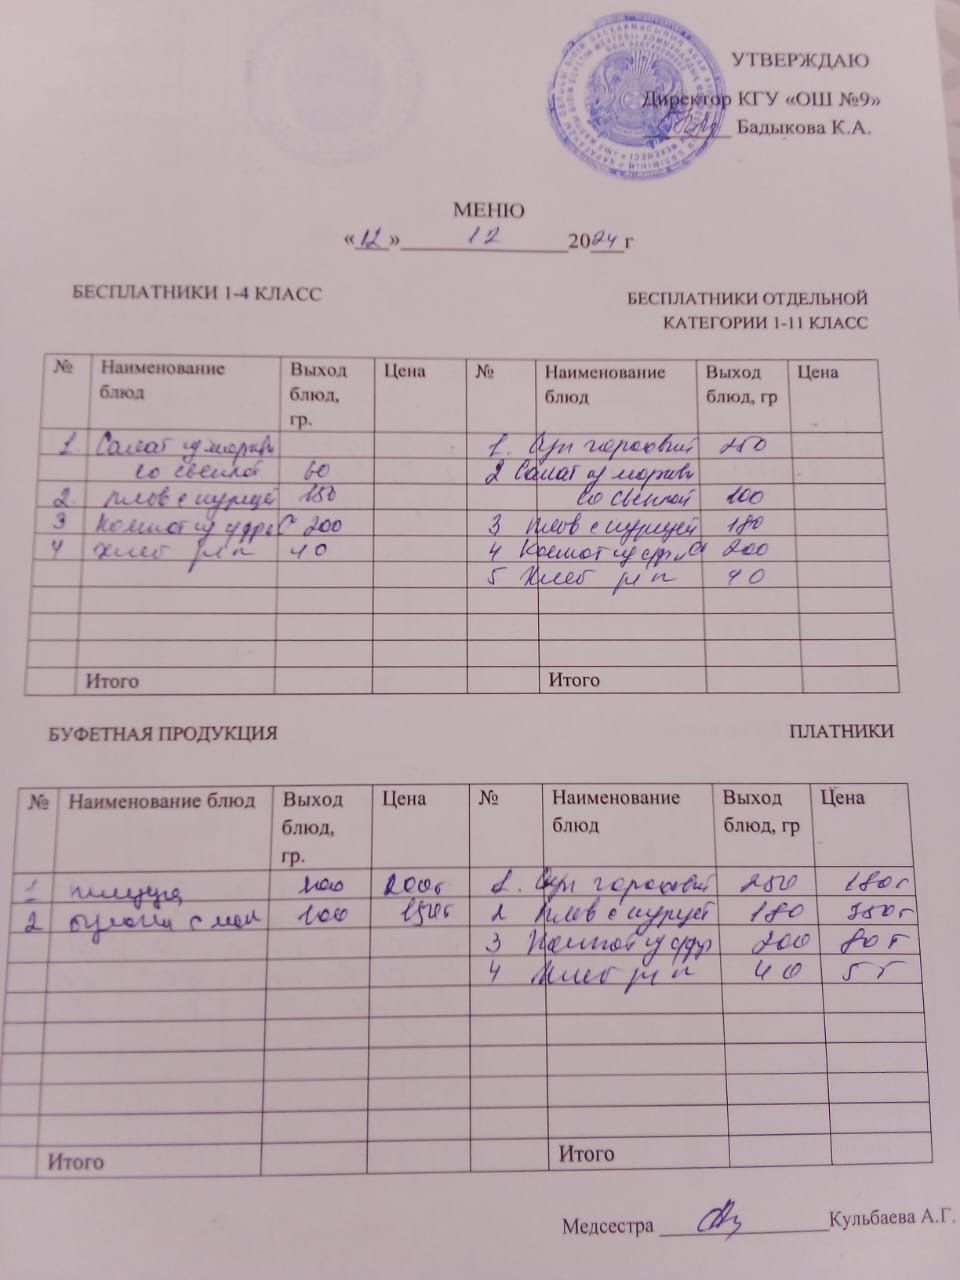 УТВЕРЖДАЮ
Директор КГУ «ОШ №9»
Бадыкова К.А.
МЕНЮ
«12» 12 2024 г
БЕСПЛАТНИКИ 1-4 КЛАСС
БЕСПЛАТНИКИ ОТДЕЛЬНОЙ
КАТЕГОРИИ 1-11 КЛАСС
№ Наименование блюд Выход блюд, гр. Цена № Наименование блюд Выход блюд, гр Цена
1. Салат из моркви 1. Суп гороховый 250
со свеклой 60 2 Салат из моркви
2. Плов с курицей 150 со свеклой 100
3 Компот из 200 3 Плов с курицей 180
4 Хлеб рж п 40 4 Компот из 200
5 Хлеб рж п 40
Итого Итого
БУФЕТНАЯ ПРОДУКЦИЯ ПЛАТНИКИ
№ Наименование блюд Выход блюд, гр. Цена № Наименование блюд Выход блюд, гр Цена
1 пицца 100 200т 1. Суп гороховый 250 180т
2 с 100 150т 2 Плов с курицей 180 350т
3 Компот из 200 80т
4 Хлеб рж п 40 5т
Итого Итого
Медсестра Кульбаева А.Г.